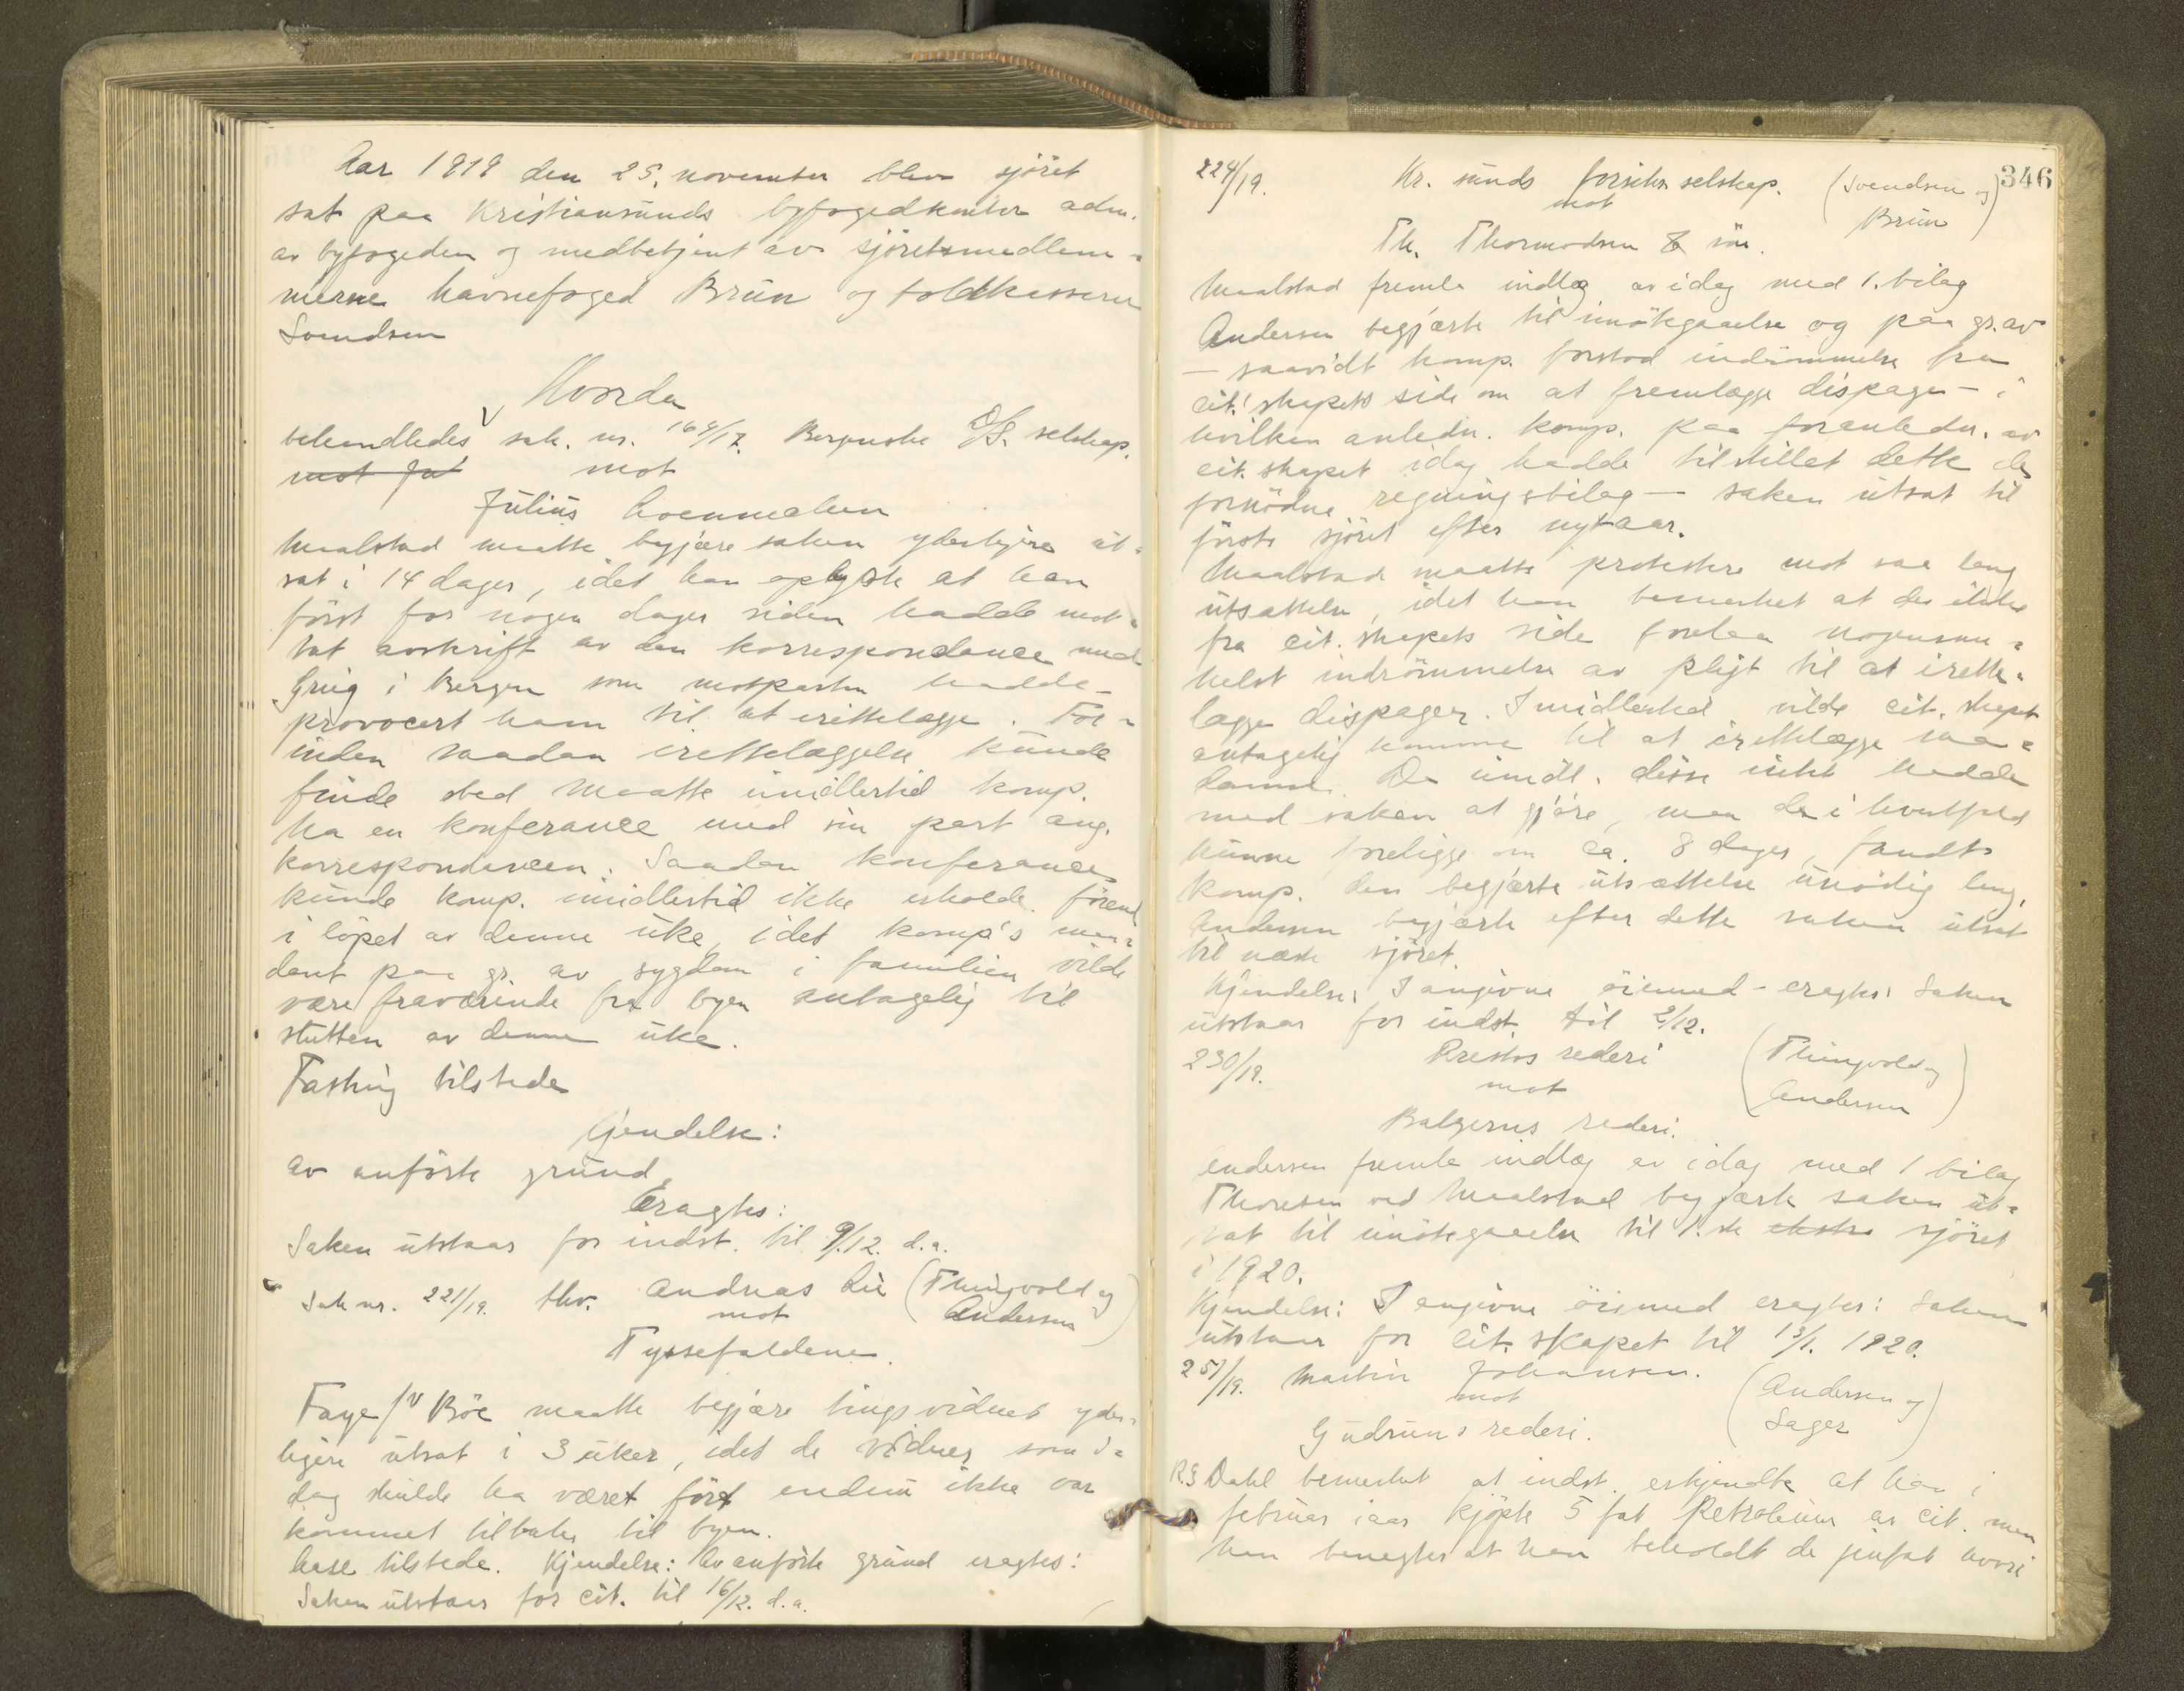 Aar 1919 den 25. november blev sjöret
sat paa Kristiansunds byfogedkontor adm.
av byfogeden og medbetjent av sjöretsmedlem-
merne havnefoged Brün og toldkasserer
Svendsen
Hvorda
behandledes sak. nr. 164/17. Bergenske D/S. selskap.
mot Jul mot
Julius
Maalstad maatte begjære saken yderligere ut-
sat i 14 dager, idet han oplyste at han
först for nogen dager siden hadde mot-
tat avskrift av den korrespondance med
Grieg i Bergen som motparten hadde
provocert ham til at irettelægge. For-
inden saadan irettelæggelse kunde
finde sted maatte imidlertid komp.
ha en konferance med sin part ang.
korrespondancen. Saadan konferance
kunde komp. imidlertid ikke erholde förend
i löpet av denne uke, idet komp's man-
dant paa gr. av sygdom i familien vilde
være fraværende fra byen antagelig til
slutten av denne uke.
Fasting tilstede
Kjendelse:
Av anförte grund
Eragtes:
Saken utstaar for indst. til 9/12. d.a.
Sak nr. 221/19. thv. Andreas Lie (Thingvold og
mot Andersen)
Tyssefaldene.
Faye f/v Böe maatte begjære tingsvidnet yder-
ligere utsat i 3 uker, idet de vidner som i-
dag skulde ha været fört endnu ikke var
kommet tilbake til byen.
Aase tilstede. Kjendelse: Av anförte grund eragtes:
Saken utstaar for cit. til 16/12. d.a.
346
224/19. Kr. sunds forsikr. selskap. (Svendsen og
mot Brün)
Th. Thormodsen & sön.
Maalstad fremla indlæg av idag med 1. bilag
Andersen begjærte til imötegaaelse og paa gr. av
- saavidt komp. forstod indrömmelse fra
cit.skapets side om at fremlægge dispager - i
hvilken anledn. komp. paa foranledn. av
cit.skapet idag hadde tilstillet dette de
fornödne regningsbilag - saken utsat til
förste sjöret efter nytaar.
Maalstad maatte protestere mot saa lang
utsættelse, idet han bemerket at der ikke
fra cit.skapets side forelaa nogensom-
helst indrömmelse av pligt til at irette-
lægge dispager. Imidlertid vilde cit.skapet
antagelig komme til at irettelægge saa-
danne. Da imidl. disse intet hadde
med saken at gjöre, men de i hvertfald
kunne foreligge om ca. 8 dager, fandt
komp. den begjærte utsættelse unödig lang.
Andersen begjærte efter dette saken utsat
til næste sjöret.
Kjendelse: I angivne öiemed eragtes: Saken
utstaar for indst. til 2/12.
230/19. Prestos rederi (Thingvold og
mot Andersen)
Balgerus rederi.
Andersen fremla indlæg av idag med 1 bilag
Thoresen ved Maalstad begjærte saken ut-
sat til imötegaaelse til 1.ste ekstra sjöret
i 1920.
Kjendelse: I angivne öiemed eragtes: Saken
utstaar for cit.skapet til 13/1. 1920.
251/19. Martin Johansen. (Andersen og
mot Sager)
Gudruns rederi.
R.S Dahl bemerket at indst. erkjendte at han i
februar iaar kjöpte 5 fat Petroleum av cit. men
han benegter at han beholdt de jernfat hvori